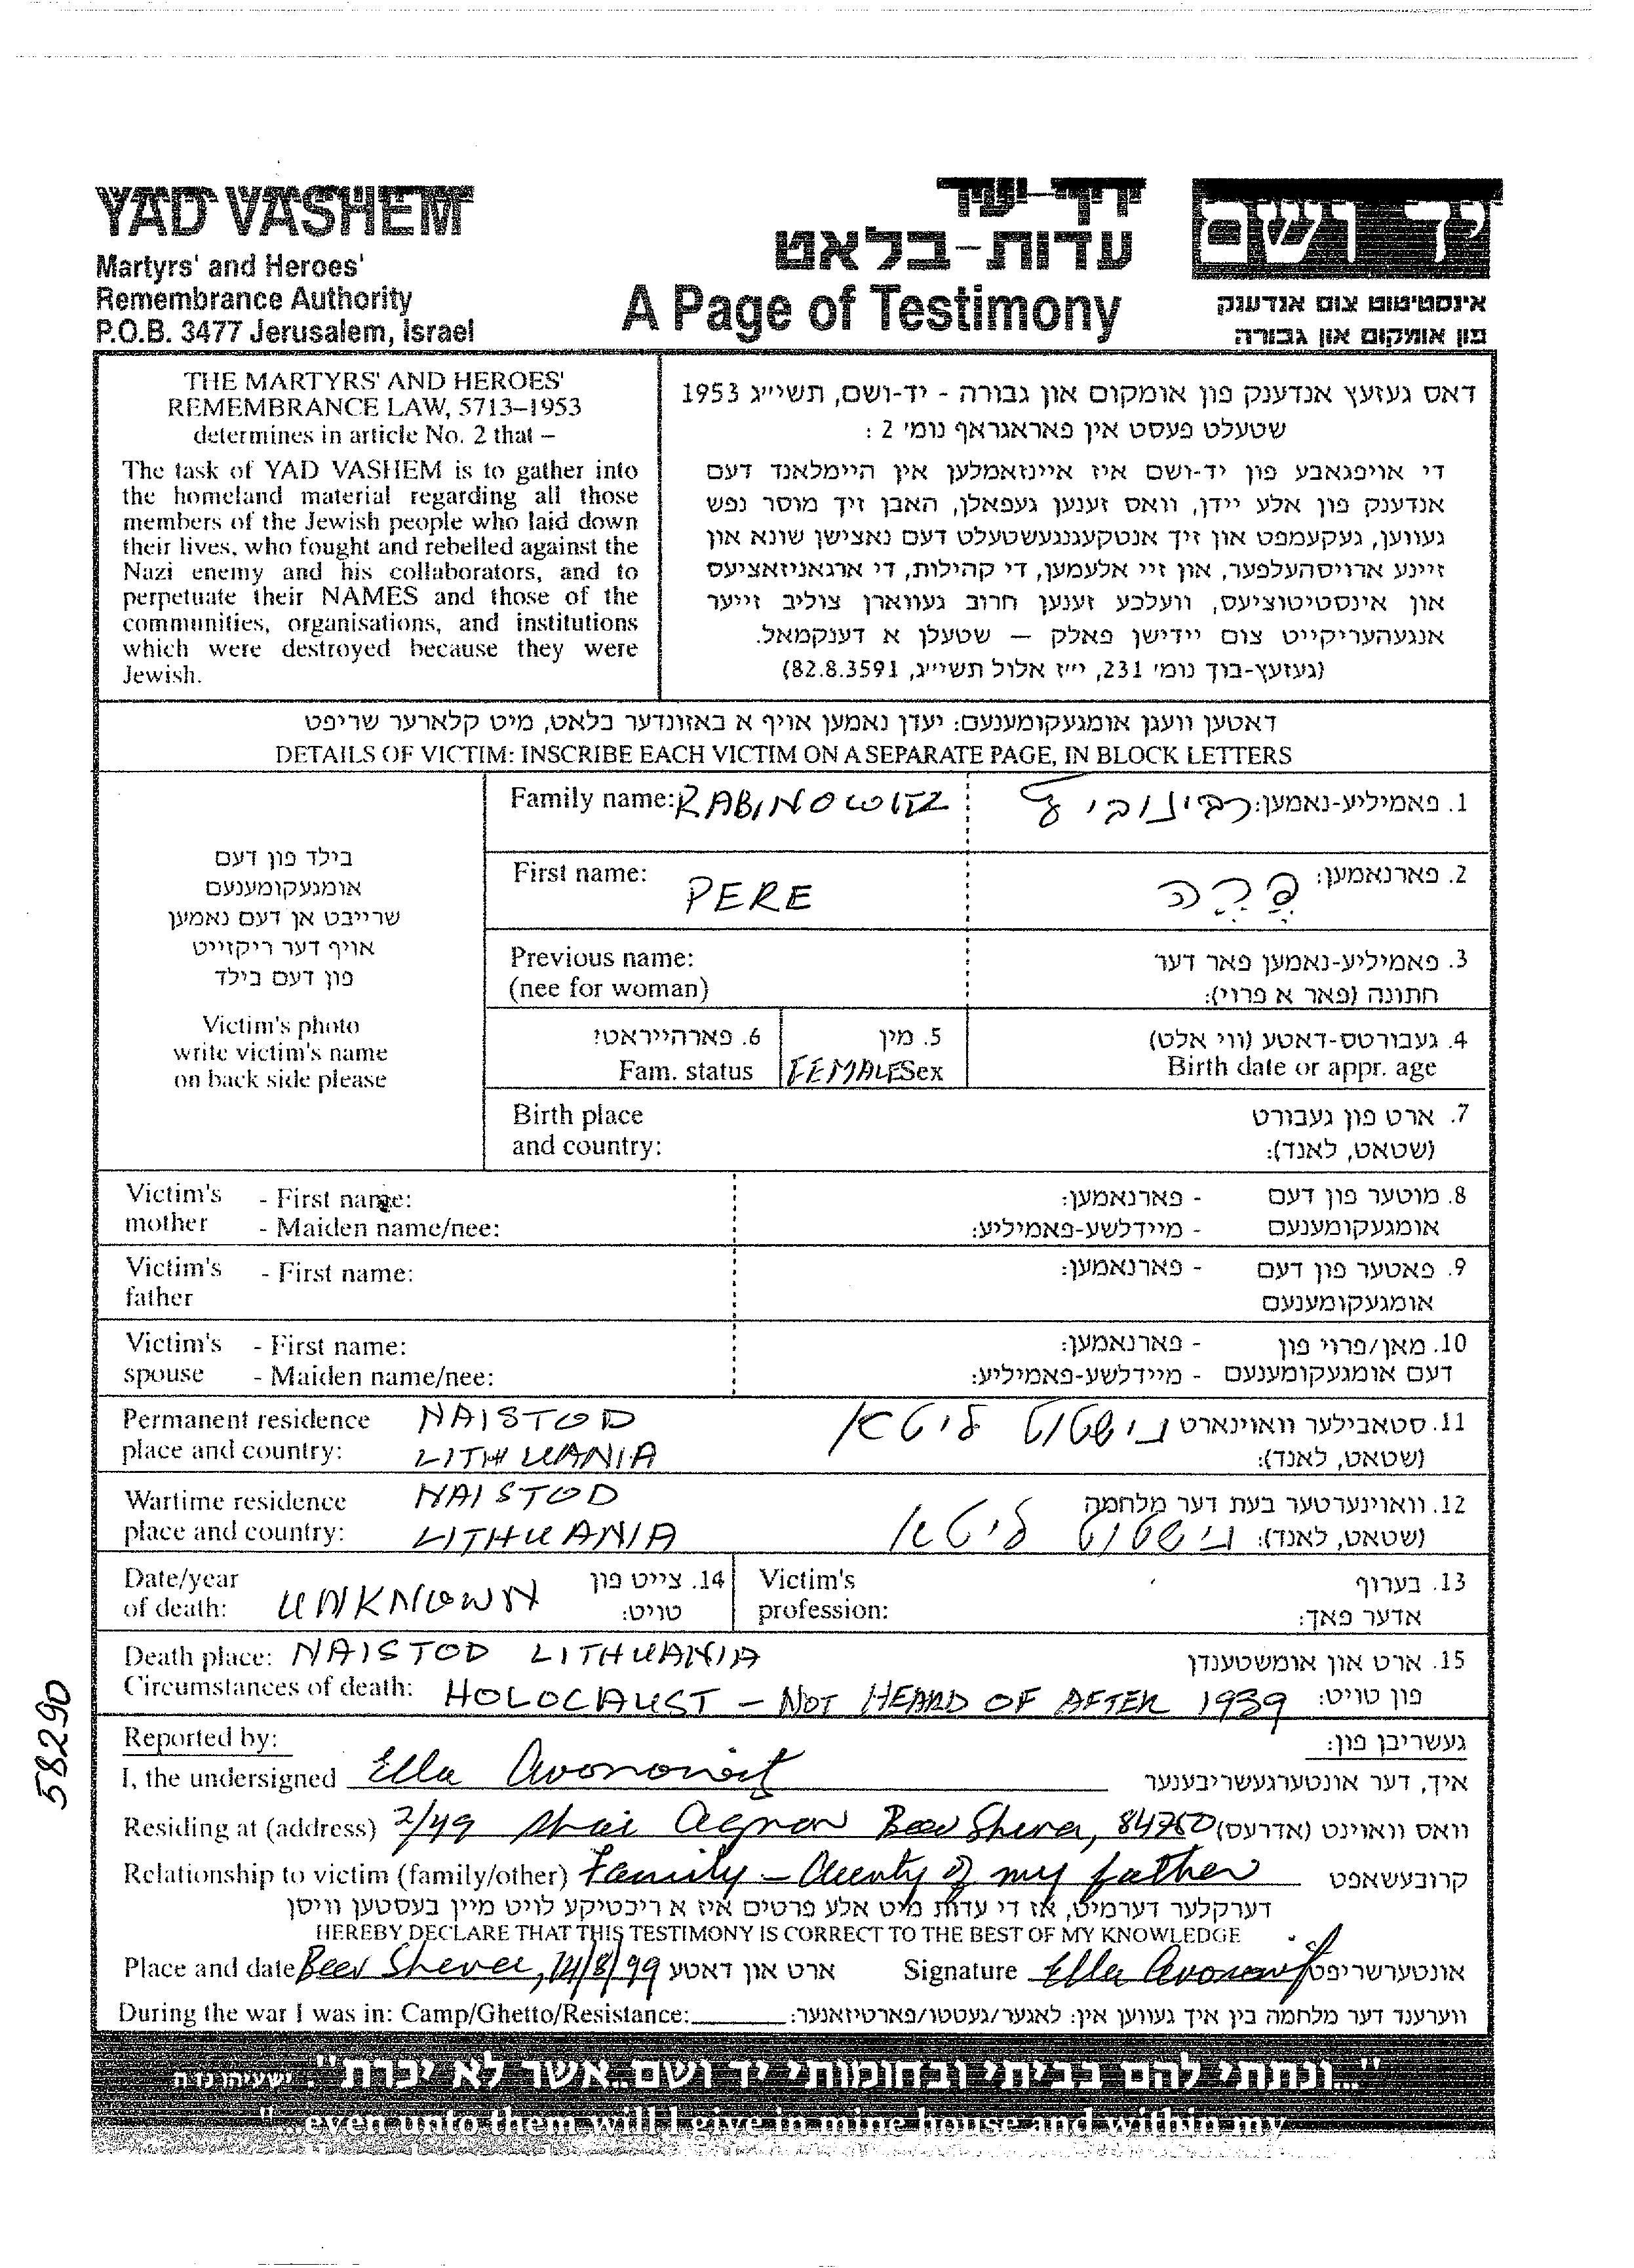 YAD VASHEM
Martyrs' and Heroes'
Remembrance Authority
P.O.B. 3477 Jerusalem, Israel
דף-עד
עדות-בלאט
A Page of Testimony
יד ושם
אינסטיטוט צום אנדענק
פון אומקום און גבורה
THE MARTYRS' AND HEROES'
REMEMBRANCE LAW, 5713–1953
determines in article No. 2 that –
The task of YAD VASHEM is to gather into
the homeland material regarding all those
members of the Jewish people who laid down
their lives, who fought and rebelled against the
Nazi enemy and his collaborators, and to
perpetuate their NAMES and those of the
communities, organisations, and institutions
which were destroyed because they were
Jewish.
דאס געזעץ אנדענק פון אומקום און גבורה - יד-ושם, תשי״ג 1953
שטעלט פעסט אין פאראגראף נומ׳ 2 :
די אויפגאבע פון יד-ושם איז איינזאמלען אין היימלאנד דעם
אנדענק פון אלע יידן, וואס זענען געפאלן, האבן זיך מוסר נפש
געווען, געקעמפט און זיך אנטקעגנגעשטעלט דעם נאצישן שונא און
זיינע ארויסהעלפער, און זיי אלעמען, די קהילות, די ארגאניזאציעס
און אינסטיטוציעס, וועלכע זענען חרוב געווארן צוליב זייער
אנגעהעריקייט צום יידישן פאלק — שטעלן א דענקמאל.
(געזעץ-בוך נומ׳ 132, י״ז אלול תשי״ג, 82.8.3591)
דאטען וועגן אומגעקומענעם: יעדן נאמען אויף א באזונדער בלאט, מיט קלארער שריפט
DETAILS OF VICTIM: INSCRIBE EACH VICTIM ON A SEPARATE PAGE, IN BLOCK LETTERS
בילד פון דעם
אומגעקומענעם
שרייבט אן דעם נאמען
אויף דער ריקזייט
פון דעם בילד
Victim's photo
write victim's name
on back side please
Family name: RABINOWITZ רבינוביץ 1. פאמיליע-נאמען:
First name: PERE פֶּרֶה 2. פארנאמען:
Previous name: 3. פאמיליע-נאמען פאר דער
(nee for woman) חתונה (פאר א פרוי):
6. פארהייראט? 5. מין 4. געבורטס-דאטע (ווי אלט)
Fam. status FEMALE Sex Birth date or appr. age
Birth place 7. ארט פון געבורט
and country: (שטאט, לאנד):
Victim's - First name: - פארנאמען: 8. מוטער פון דעם
mother - Maiden name/nee: - מיידלשע-פאמיליע: אומגעקומענעם
Victim's - First name: - פארנאמען: 9. פאטער פון דעם
father אומגעקומענעם
Victim's - First name: - פארנאמען: 10. מאן/פרוי פון
spouse - Maiden name/nee: - מיידלשע-פאמיליע: דעם אומגעקומענעם
Permanent residence NAISTOD נישטוט ליטא 11. סטאבילער וואוינארט
place and country: LITHUANIA (שטאט, לאנד):
Wartime residence NAISTOD 12. וואוינערטער בעת דער מלחמה
place and country: LITHUANIA נישטוט ליטא (שטאט, לאנד):
Date/year 14. צייט פון Victim's 13. בערוף
of death: UNKNOWN טויט: profession: אדער פאך:
Death place: NAISTOD LITHUANIA 15. ארט און אומשטענדן
Circumstances of death: HOLOCAUST – NOT HEARD OF AFTER 1939 פון טויט:
58290
Reported by: געשריבן פון:
I, the undersigned Ella איך, דער אונטערגעשריבענער
Residing at (address) 2/49 Shai Agnon Beer Sheva, 84750 וואס וואוינט (אדרעס)
Relationship to victim (family/other) Family – Aunty of my father קרובעשאפט
דערקלער דערמיט, אז די עדות מיט אלע פרטים איז א ריכטיקע לויט מיין בעסטען וויסן
HEREBY DECLARE THAT THIS TESTIMONY IS CORRECT TO THE BEST OF MY KNOWLEDGE
Place and date Beer Sheva, 14/8/99 ארט און דאטע Signature Ella אונטערשריפט
During the war I was in: Camp/Ghetto/Resistance: ווערענד דער מלחמה בין איך געווען אין: לאגער/געטטו/פארטיזאנער:
"...ונתתי להם בביתי ובחומותי יד ושם...אשר לא יכרת". ישעיהו נו ה
"...even unto them will I give in mine house and within my